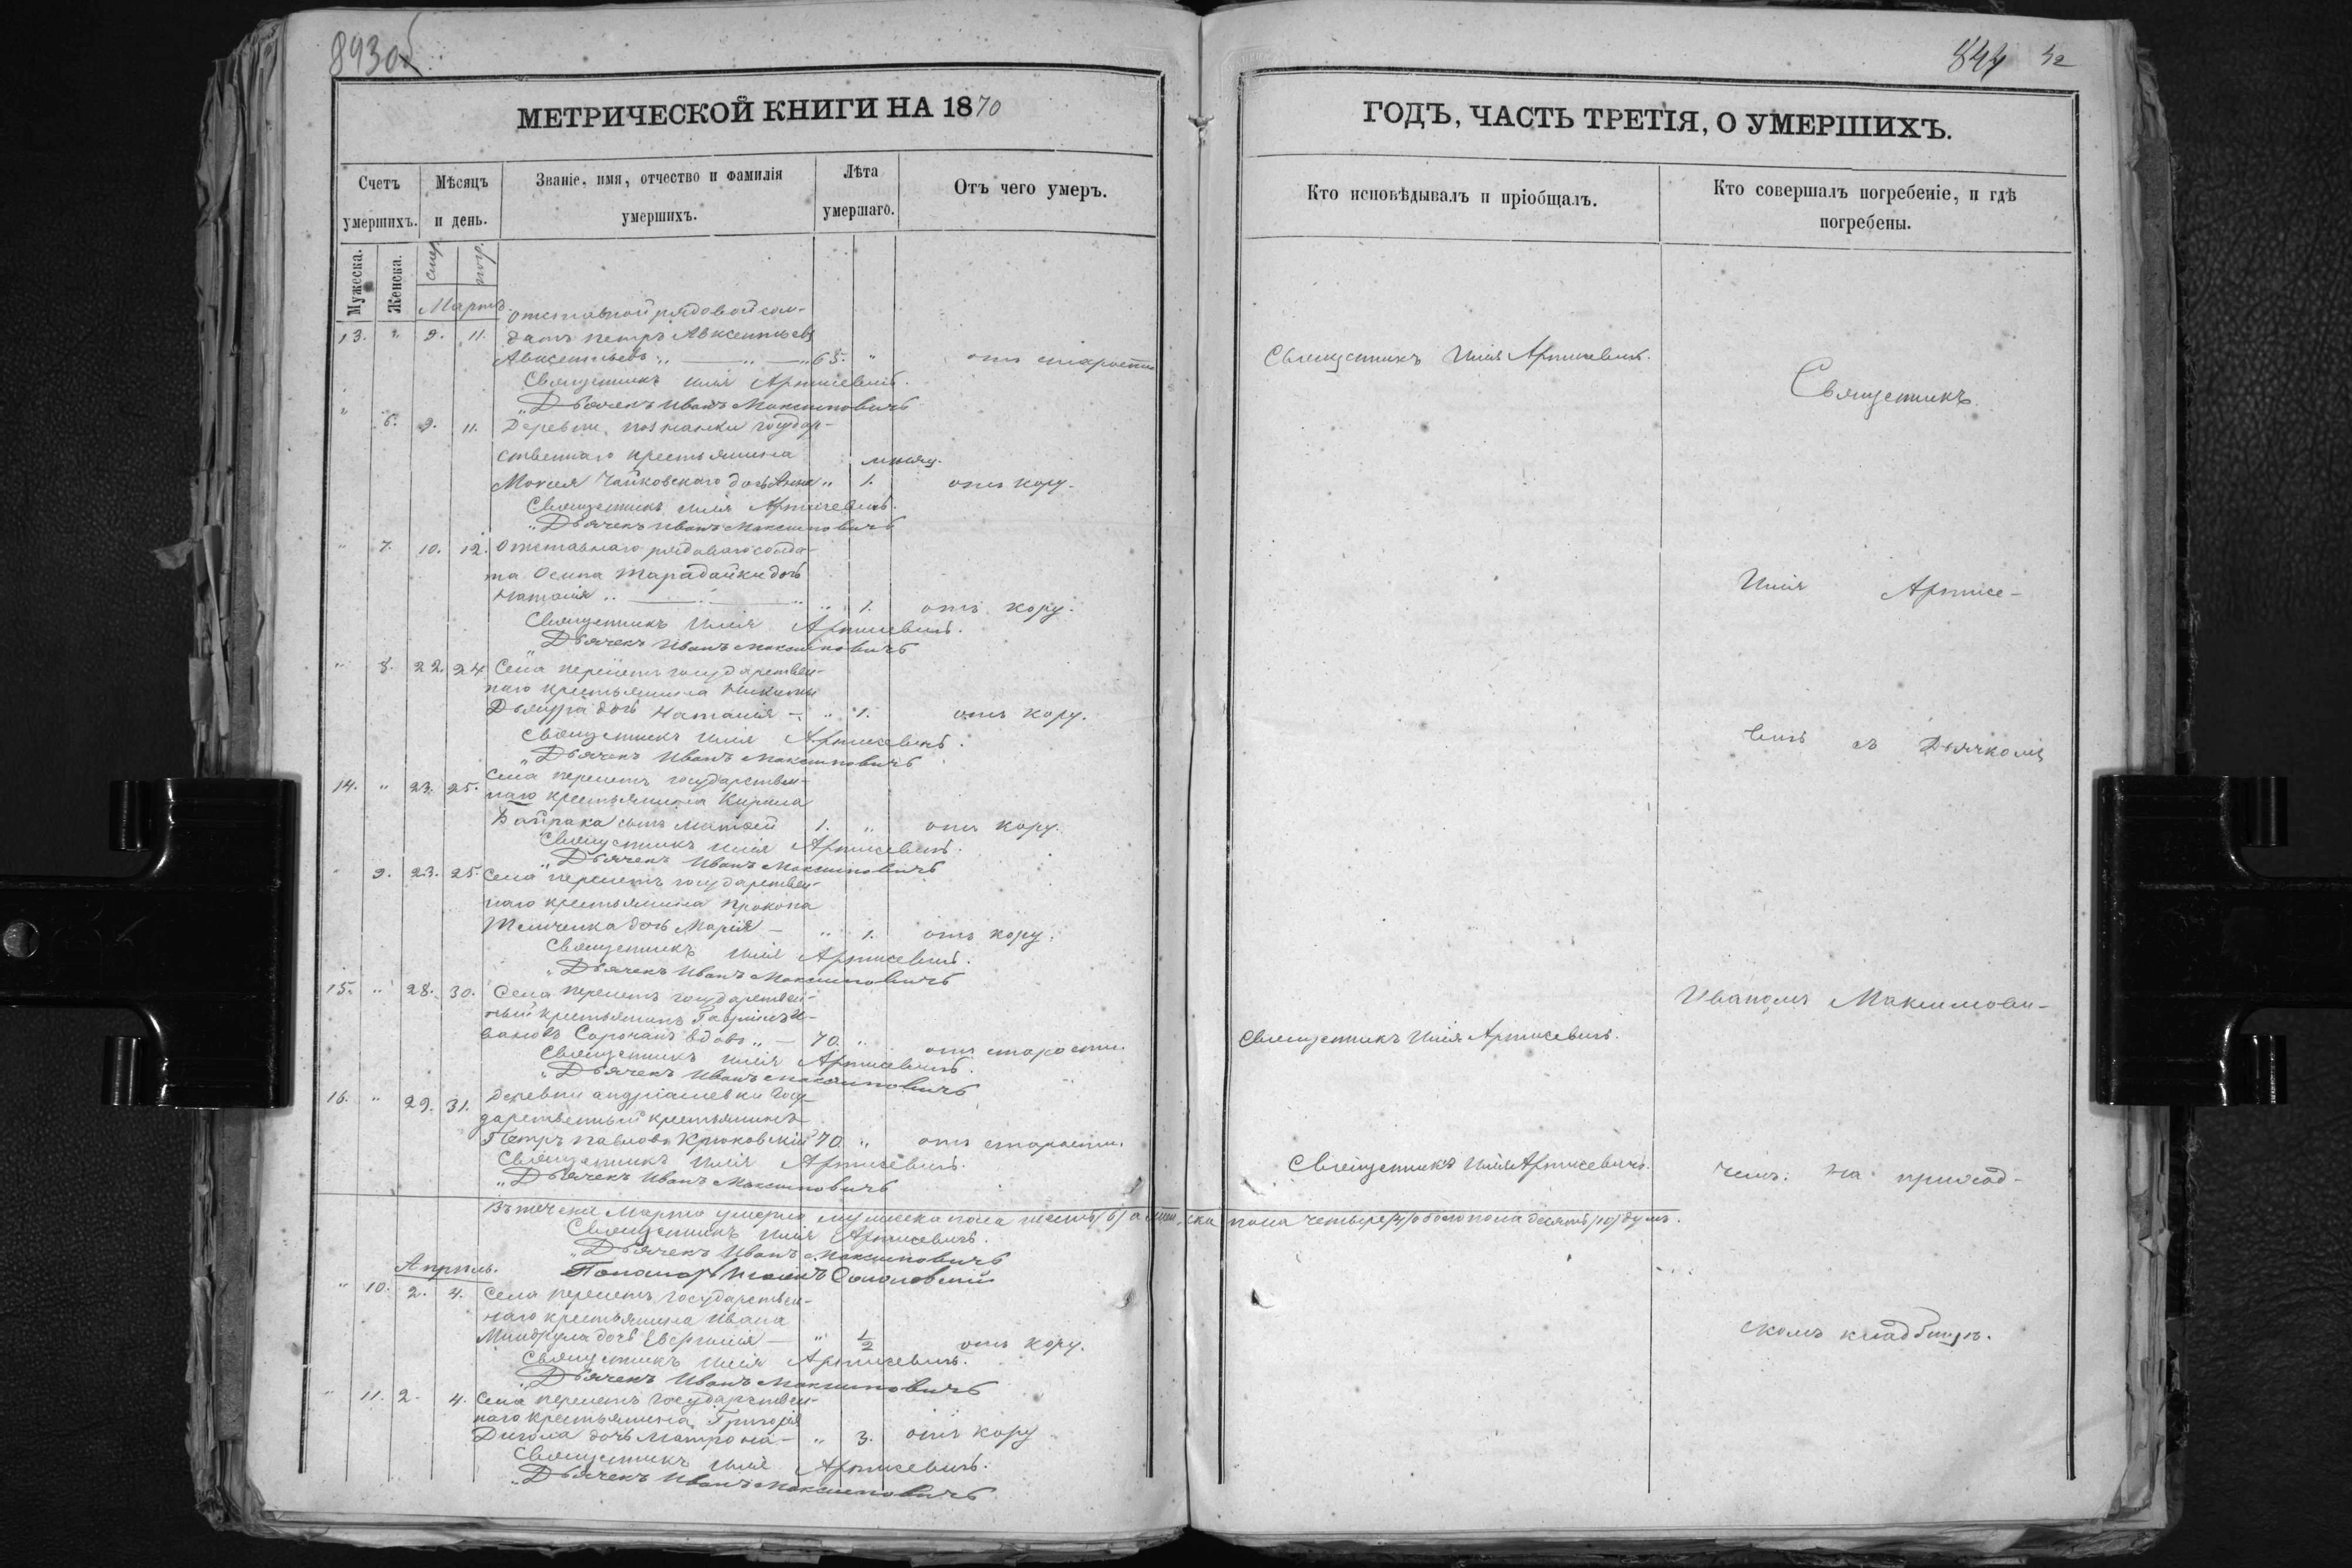 843об
МЕТРИЧЕСКОЙ КНИГИ НА 1870
Счетъ умершихъ.
Мѣсяцъ и день.
Званіе, имя, отчество и фамилія умершихъ.
Лѣта умершаго.
Отъ чего умеръ.
Мужеска.
Женска.
смер.
погр.
Мартъ
отставной рядовой сол-
13. " 9. 11. датъ петръ Авксентьевъ
Авксентьевъ " — " — " 65. " отъ старости
Священникъ Илія Артисевичъ.
"Дьячекъ Иванъ Максимовичъ
" 6. 9. 11. Деревни познанки государ-
ственнаго крестьянина
Мокея Чайковскаго дочь " 1. отъ кору.
Священникъ Илія Артисевичъ.
"Дьячекъ Иванъ Максимовичъ
" 7. 10. 12. Отставнаго рядоваго солда-
та Осипа Тарадайки дочь
Наталія " — " — " " 1. отъ кору.
Священникъ Илія Артисевичъ.
"Дьячекъ Иванъ Максимовичъ
" 8. 22. 24 Села перелетъ государствен-
наго крестьянина Никиты
дочь Наталія — " 1. отъ кору.
Священникъ Илія Артисевичъ.
"Дьячекъ Иванъ Максимовичъ
Села перелетъ государствен-
14. " 23. 25. наго крестьянина Кирила
Байрака сынъ Матфей 1. " отъ кору.
Священникъ Илія Артисевичъ.
"Дьячекъ Иванъ Максимовичъ
" 9. 23. 25. Села перелетъ государствен-
наго крестьянина Прокопа
дочь Марія — " 1. отъ кору.
Священникъ Илія Артисевичъ.
"Дьячекъ Иванъ Максимовичъ
15. " 28. 30. Села перелетъ государствен-
ный крестьянинъ Гавріилъ И-
вановъ Сорочанъ вдовъ " — 70 " отъ старости.
Священникъ Илія Артисевичъ.
"Дьячекъ Иванъ Максимовичъ
16. " 29. 31. Деревни андріяшевки Госу-
дарственный крестьянинъ
Петръ павловъ Крюковскій 70 " отъ старости.
Священникъ Илія Артисевичъ.
"Дьячекъ Иванъ Максимовичъ
Въ теченіи Марта умерло мужеска пола шесть /6/ а женска пола четыре /4/ обоего пола десять /10/ душъ.
Священникъ Илія Артисевичъ.
"Дьячекъ Иванъ Максимовичъ
Пономарь
Апрель.
" 10. 2. 4. Села перелетъ Государствен-
наго крестьянина Ивана
дочь — " 1/2 отъ кору.
Священникъ Илія Артисевичъ.
"Дьячекъ Иванъ Максимовичъ
" 11. 2. 4. Села перелетъ Государствен-
наго крестьянина Григорія
Дигола дочь Матрона — " 3. отъ кору
Священникъ Илія Артисевичъ.
"Дьячекъ Иванъ Максимовичъ
844 52
ГОДЪ, ЧАСТЬ ТРЕТІЯ, О УМЕРШИХЪ.
Кто исповѣдывалъ и пріобщалъ.
Кто совершалъ погребеніе, и гдѣ погребены.
Священникъ Илія Артисевичъ.
Священникъ
Илія Артисе-
вичъ съ Дьячкомъ
Иваномъ Максимови-
Священникъ Илія Артисевичъ.
Священникъ Илія Артисевичъ.
чемъ: на приход-
скомъ кладбищѣ.